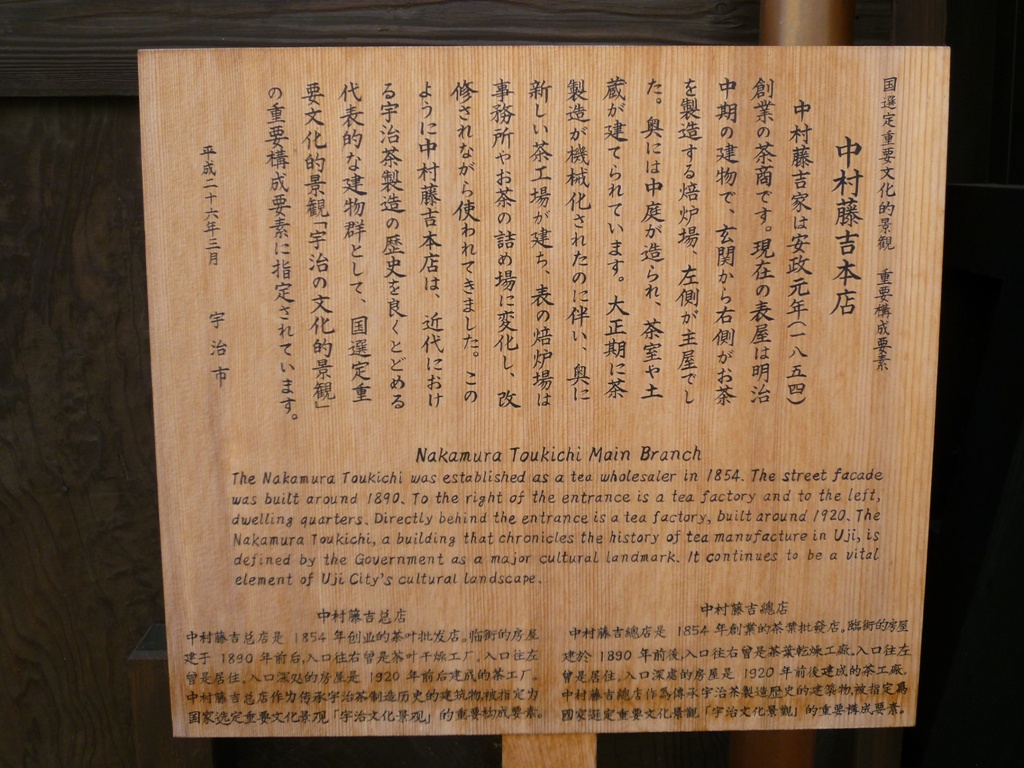 国選定重要文化的景観　重要構成要素
中村藤吉本店
中村藤吉家は安政元年(一八五四)
創業の茶商です。現在の表屋は明治
中期の建物で、玄関から右側がお茶
を製造する焙炉場、左側が主屋でし
た。奥には中庭が造られ、茶室や土
蔵が建てられています。大正期に茶
製造が機械化されたのに伴い、奥に
新しい茶工場が建ち、表の焙炉場は
事務所やお茶の詰め場に変化し、改
修されながら使われてきました。この
ように中村藤吉本店は、近代におけ
る宇治茶製造の歴史を良くとどめる
代表的な建物群として、国選定重
要文化的景観「宇治の文化的景観」
の重要構成要素に指定されています。
平成二十六年三月　宇治市
Nakamura Toukichi Main Branch
The Nakamura Toukichi was established as a tea wholesaler in 1854. The street facade
was built around 1890. To the right of the entrance is a tea factory and to the left,
dwelling quarters. Directly behind the entrance is a tea factory, built around 1920. The
Nakamura Toukichi, a building that chronicles the history of tea manufacture in Uji, is
defined by the Government as a major cultural landmark. It continues to be a vital
element of Uji City's cultural landscape.
中村藤吉总店
中村藤吉总店是 1854 年创业的茶叶批发店。临街的房屋
建于 1890 年前后,入口往右曾是茶叶干燥工厂,入口往左
曾是居住,入口深处的房屋是 1920 年前后建成的茶工厂。
中村藤吉总店作为传承宇治茶制造历史的建筑物,被指定为
国家选定重要文化景观「宇治文化景观」的重要构成要素。
中村藤吉總店
中村藤吉總店是 1854 年創業的茶葉批發店。臨街的房屋
建於 1890 年前後,入口往右曾是茶葉乾燥工廠,入口往左
曾是居住,入口深處的房屋是 1920 年前後建成的茶工廠。
中村藤吉總店作為傳承宇治茶製造歷史的建築物,被指定為
國家選定重要文化景觀「宇治文化景觀」的重要構成要素。